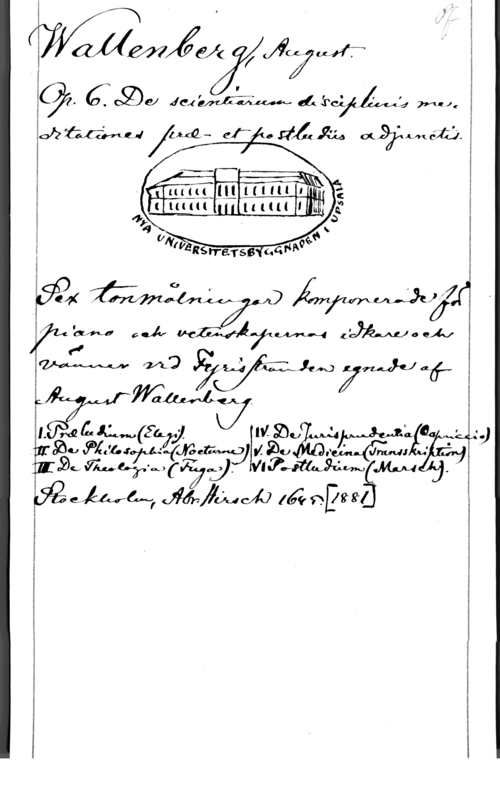 Wallenberg, August.
Op. 6. De scientiarum disciplinis me-
ditationes præ- et postludiis adjunctis.
NYA UNIVERSITETSBYGGNADEN I UPSALA
Sex tonmålningar komponerade för
piano och vetenskapernas idkare och
vänner vid Fyrisstranden egnade af
August Wallenberg
I. Præludium (Elegi). IV. De Jurisprudentia (Capriccio)
II. De Philosophia (Nocturne) V. De Medicina (Transskription)
III. De Theologia (Fuga). VI Postludium (Marsch).
Stockholm, Abr. Hirsch [1881]